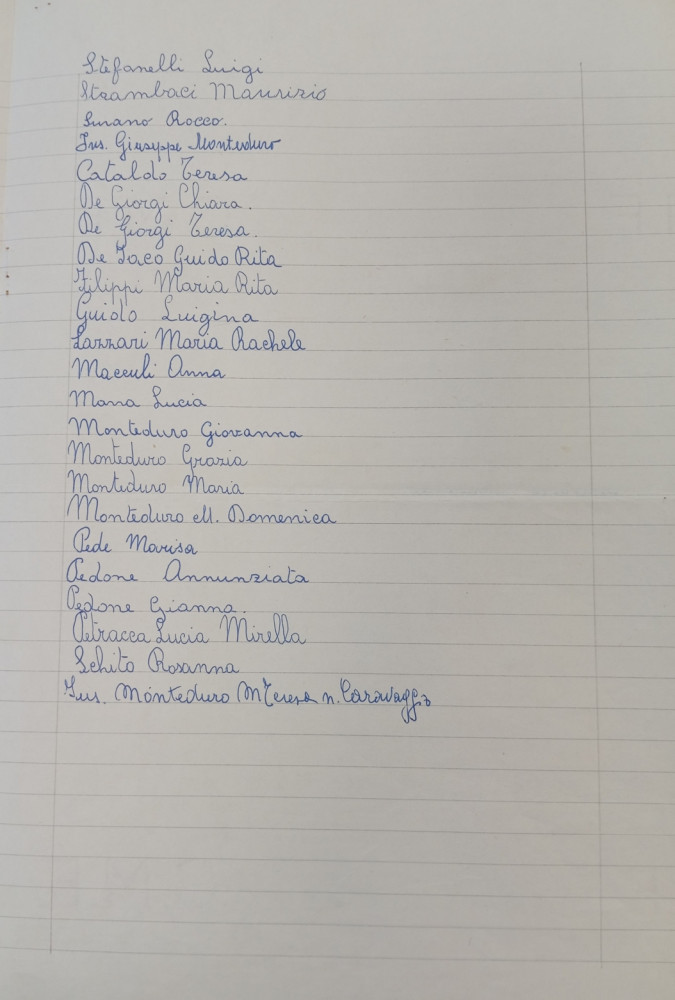 Stefanelli Luigi
Strambaci Maurizio
Surano Rocco.
Ins. Giuseppe Monteduro
Cataldo Teresa
De Giorgi Chiara.
De Giorgi Teresa.
De Iaco Guido Rita
Filippi Maria Rita
Guido Luigina
Lazzari Maria Rachele
Macculi Anna
Marra Lucia
Monteduro Giovanna
Monteduro Grazia
Monteduro Maria
Monteduro M. Domenica
Pede Marisa
Pedone Annunziata
Pedone Gianna.
Petracca Lucia Mirella
Schito Rosanna
Ins. Monteduro MTeresa n. Caravaggio